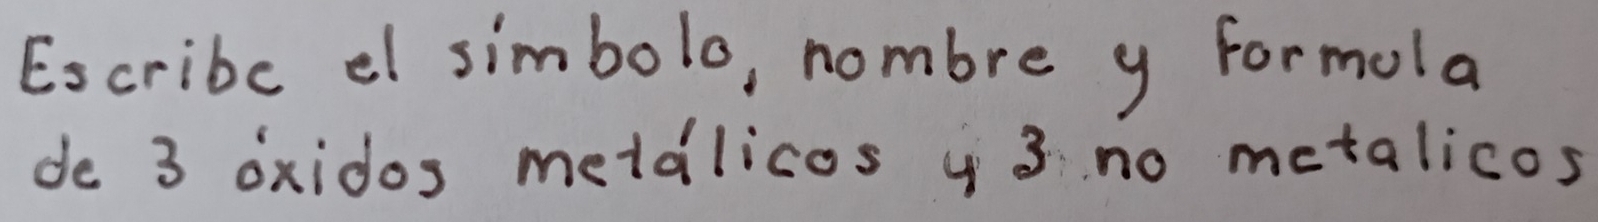 Escribe el símbolo, nombre y formula
de 3 óxidos metálicos y 3 no metalicos